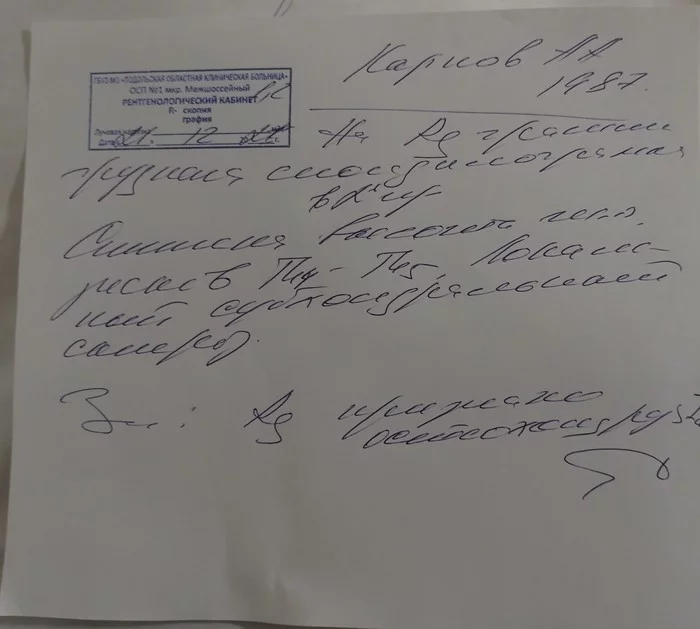 ГБУЗ МО «ПОДОЛЬСКАЯ ОБЛАСТНАЯ КЛИНИЧЕСКАЯ БОЛЬНИЦА»
ОСП №1 мкр. Межшоссейный
РЕНТГЕНОЛОГИЧЕСКИЙ КАБИНЕТ
R- скопия
графия
Лучевая
Дата 21. 12
Карпов АА
1987.
На Rg грамме
грудная спондилограмма
Снижена высота
в Th4 - Th5. Локаль-
ный субхондральный
склероз.
Зак: Rg признаки
остеохондроза